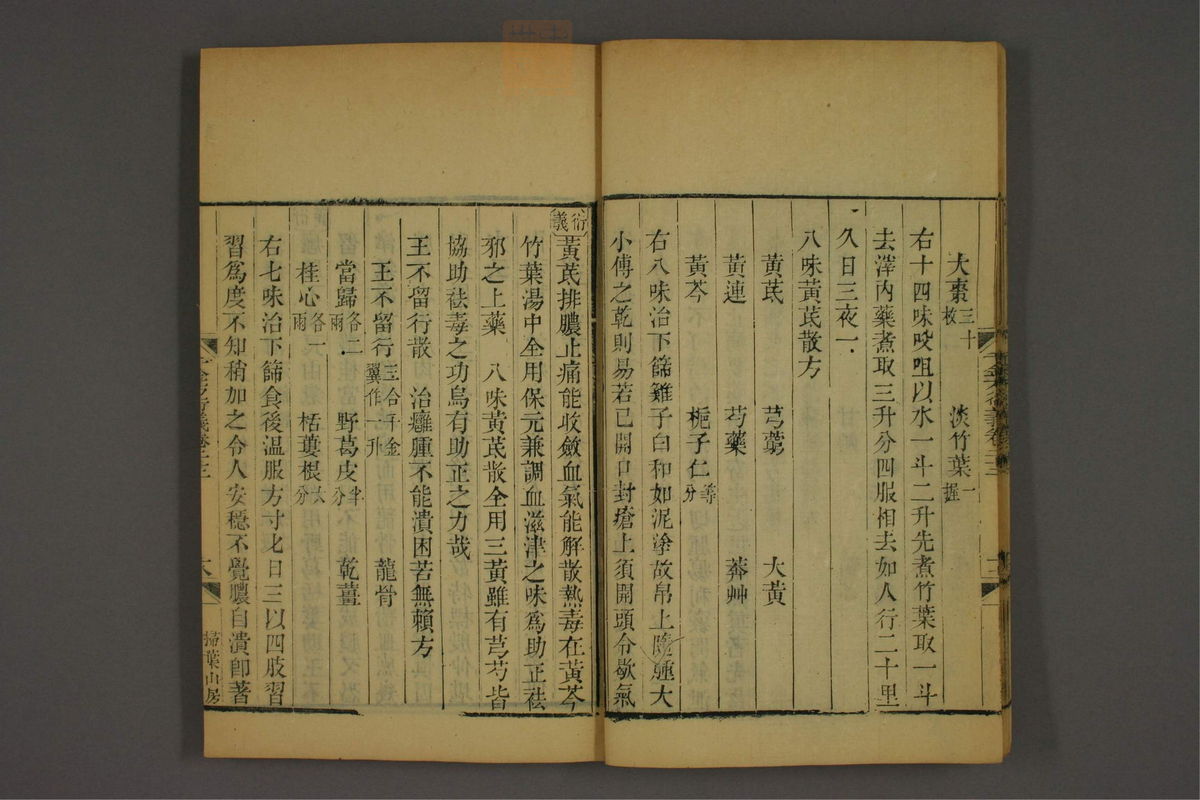 大棗三十枚　淡竹葉一握
右十四味㕮咀以水一斗二升先煮竹葉取一斗
去滓内藥煮取三升分四服相去如人行二十里
久日三夜一
八味黃芪散方
黃芪　芎藭　大黃
黃連　芍藥　莽艸
黃芩　梔子仁等分
右八味治下篩雞子白和如泥塗故帛上隨腫大
小傅之乾則易若已開口封瘡上須開頭令歇氣
衍義黃芪排膿止痛能收斂血氣能解散熱毒在黃芩
竹葉湯中全用保元兼調血滋津之味為助正祛
邪之上藥　八味黃芪散全用三黃雖有芎芍皆
協助祛毒之功烏有助正之力哉
王不留行散　治癰腫不能潰困若無賴方
王不留行三合千金翼作一升　龍骨
當歸各二兩　野葛皮半分　乾薑
桂心各一兩　栝蔞根六分
右七味治下篩食後溫服方寸匕日三以四肢習
習為度不知稍加之令人安穩不覺膿自潰卽著
千金方衍義卷二十二
掃葉山房